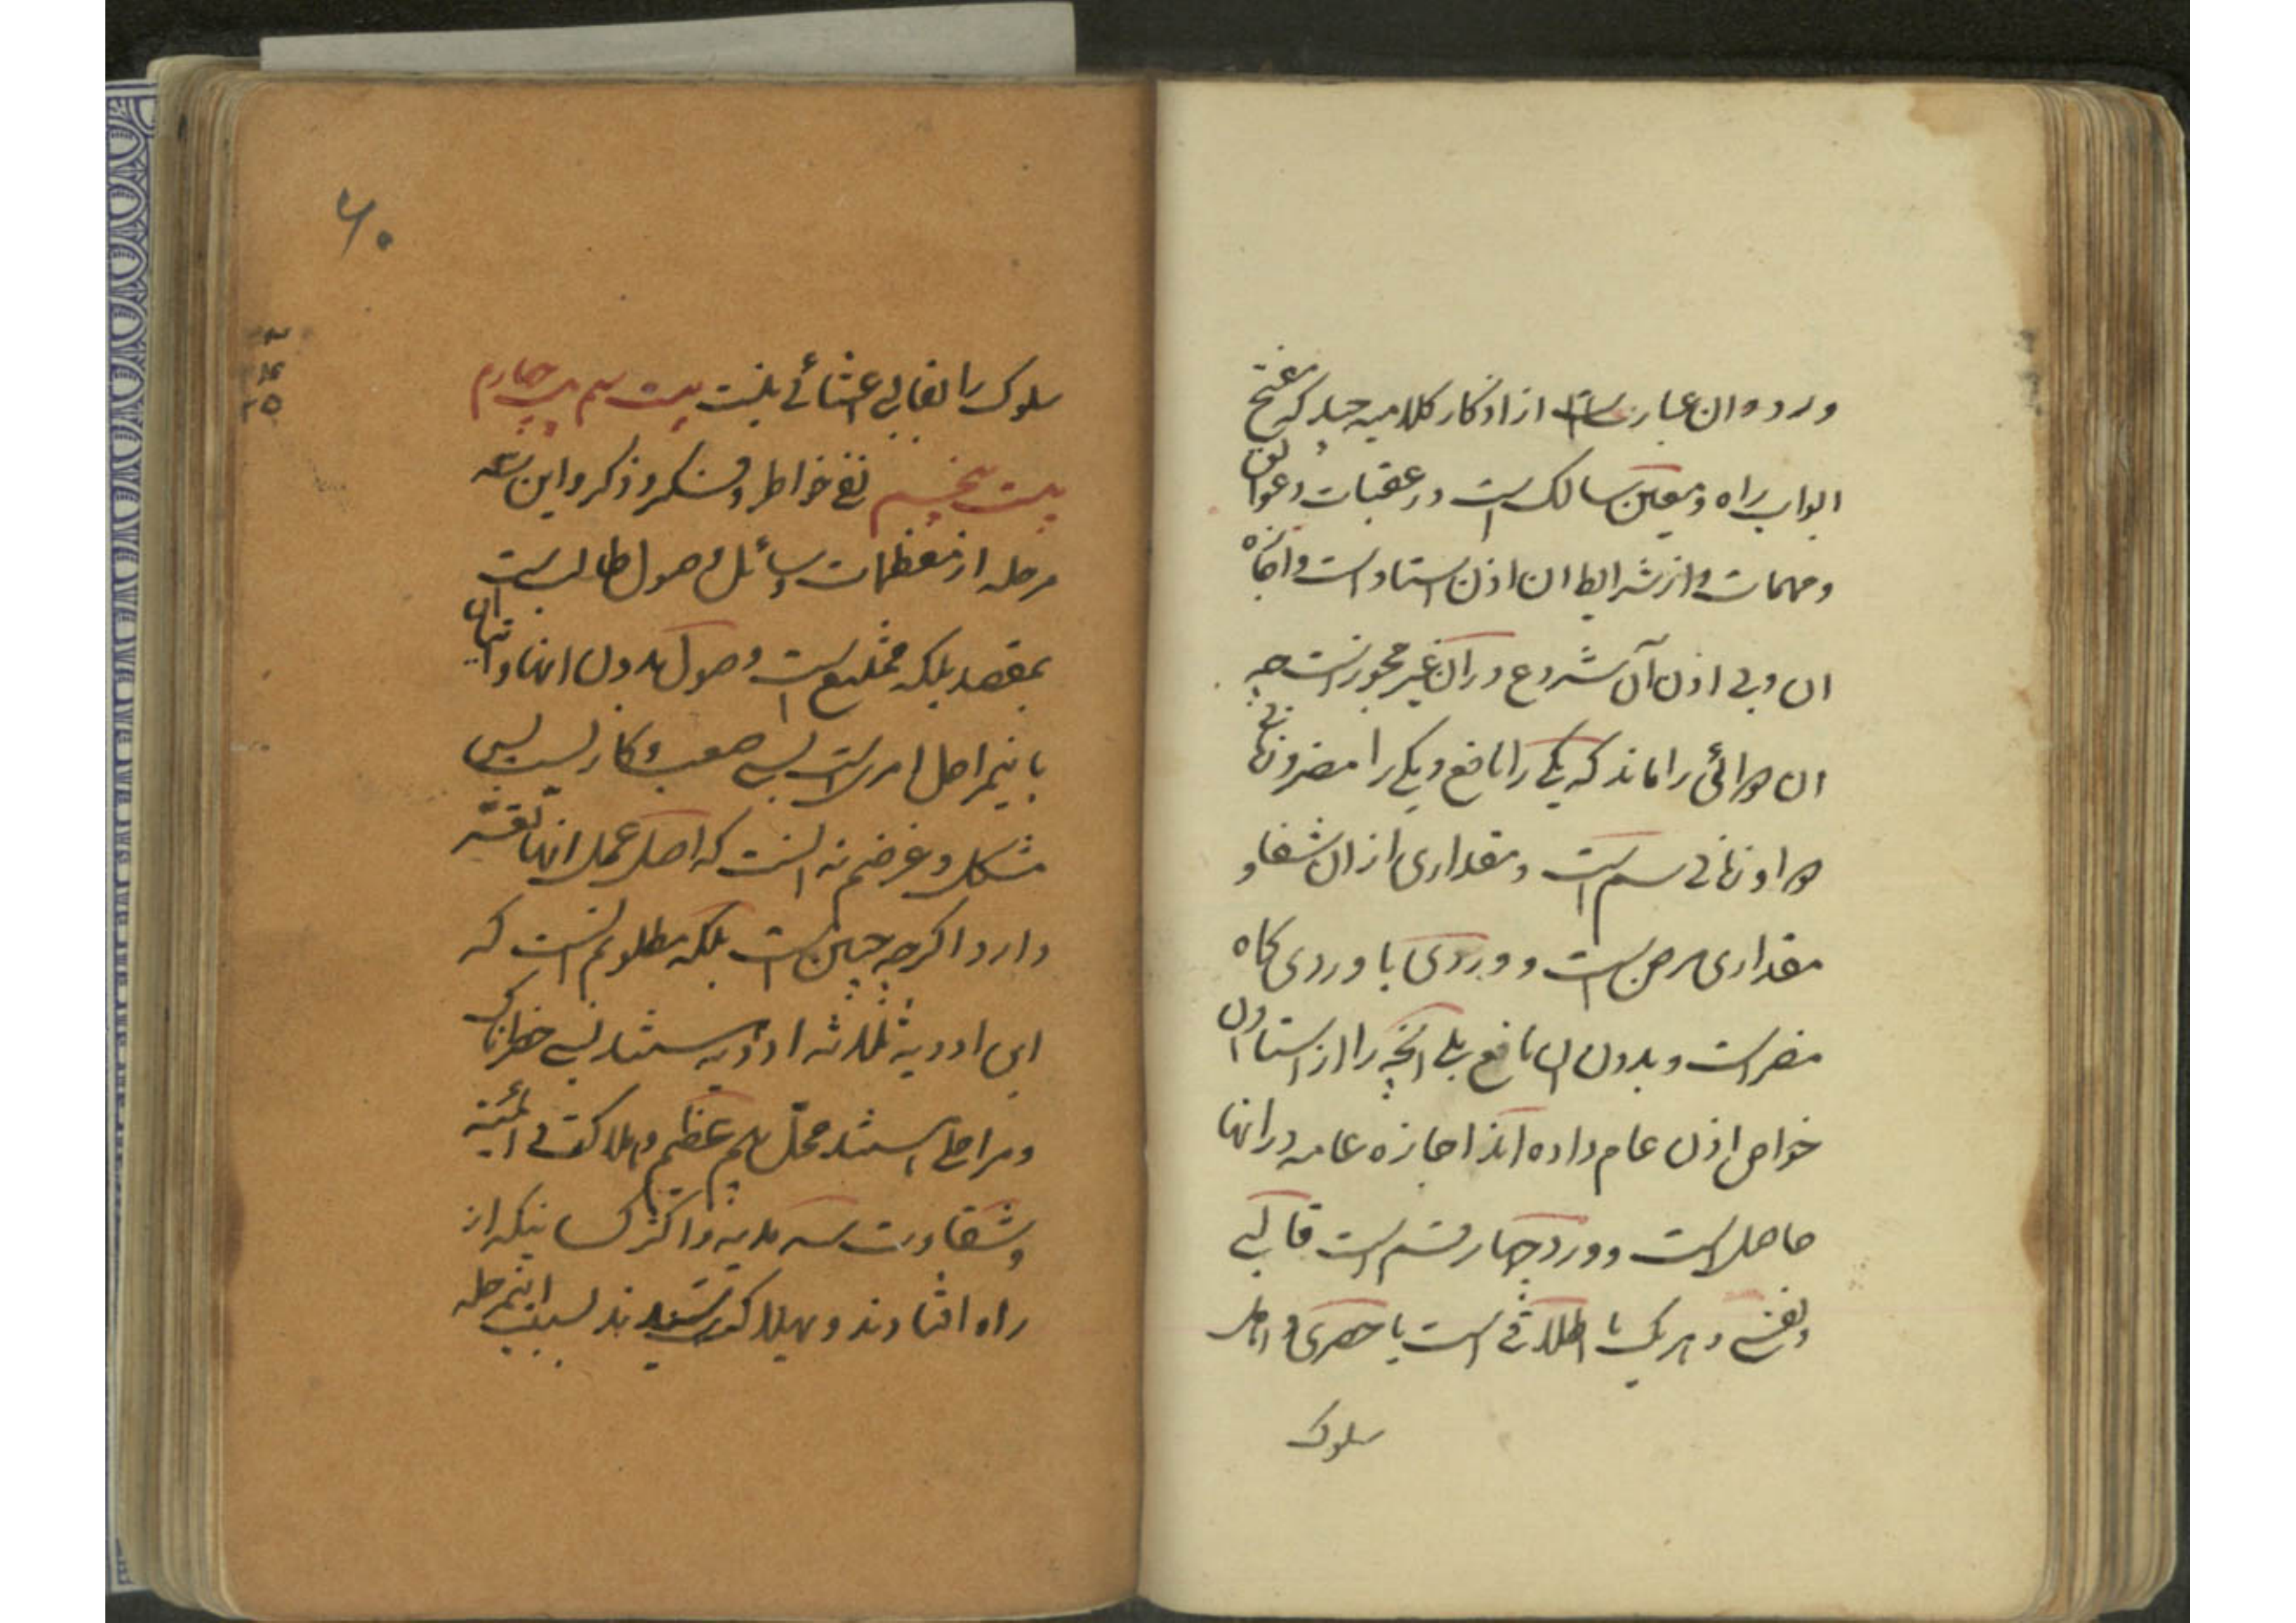 ورد و ان عبارتست از اذکار کلامیه جلیه که مفتح
ابواب راه و معین سالک است در عقبات و عوائق
و مهمات و از شرایط ان اذن استاد است و اجازه
ان و بی اذن آن شروع در آن غیر مجوز است چه
ان دوائی را ماند که یکی را نافع و یکی را مضر و زمانی
دوا و زمانی سم است و مقداری از ان شفا و
مقداری مرض است و وردی با وردی کاه
مضر است و بدون ان نافع بلی انچه را از استادان
خواص اذن عام داده اند اجازه عامه در انها
حاصل است و ورد چهار قسم است قالبی
و نفسی و هر یک یا اطلاقی است یا حصری و اهل
سلوک
۶۰
سلوک را بقالبی اعتنائی نیست بیست سیم بیست چهارم
بیست پنجم نفی خواطر و فکر و ذکر و این سه
مرحله از معظمات وسائل وصول طالب است
بمقصد بلکه ممتنع است وصول بدون انها و اتیان
باینمراحل امریست بسی صعب و کاریست بسی
مشکل و غرضم نه انست که اصل عمل انها مشقت
دارد اکرچه چنین است بلکه مطلوبم انست که
این ادویه ثلاثه ادویه هستند بسی خطرناک
و مراحلی هستند محل بیم عظیم و هلاکت دائمیه
و شقاوت سرمدیه و اکثر کسانیکه از
راه افتادند و بهلاکت رسیدند بسبب اینمرحله